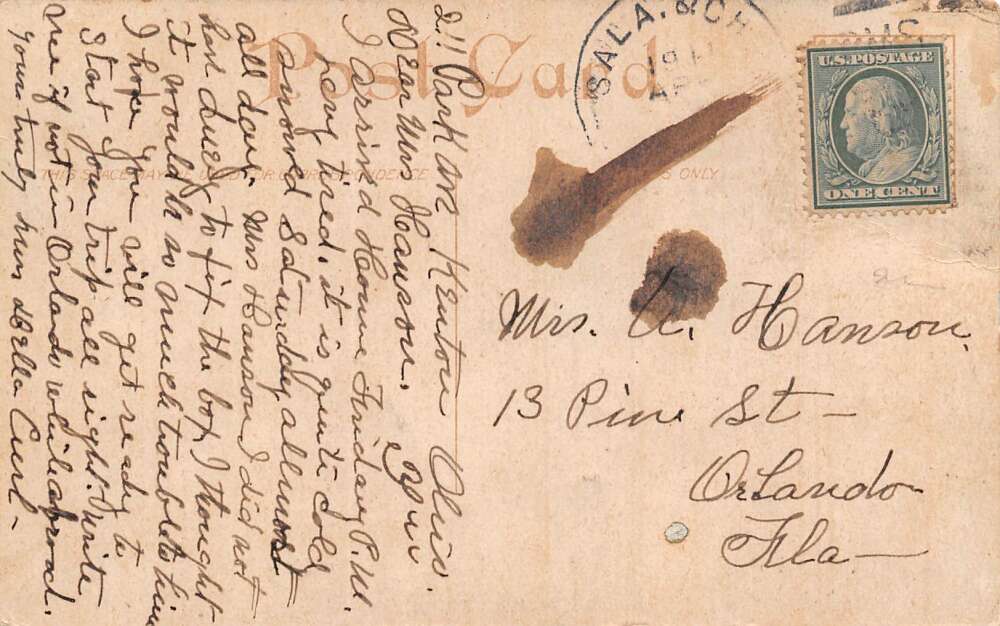 Post Card
THIS SPACE MAY BE USED FOR CORRESPONDENCE
IS ONLY
SALA. & CH
U.S. POSTAGE
ONE CENT
Mrs. A. Hanson,
13 Pine St -
Orlando
Fla -
211 Park Ave Kenton Ohio.
Dear Mrs Hanson.
I arrived Home Friday P.M.
Very tired, it is quite cold
snowed Saturday allmost
all day. Mrs Hanson I did not
have to fix the box, I thought
it would be so much trouble to him
I hope you will get ready to
Start your trip all right. Write
me if not in Orlando while abroad.
yours truly Mrs Della Curl -